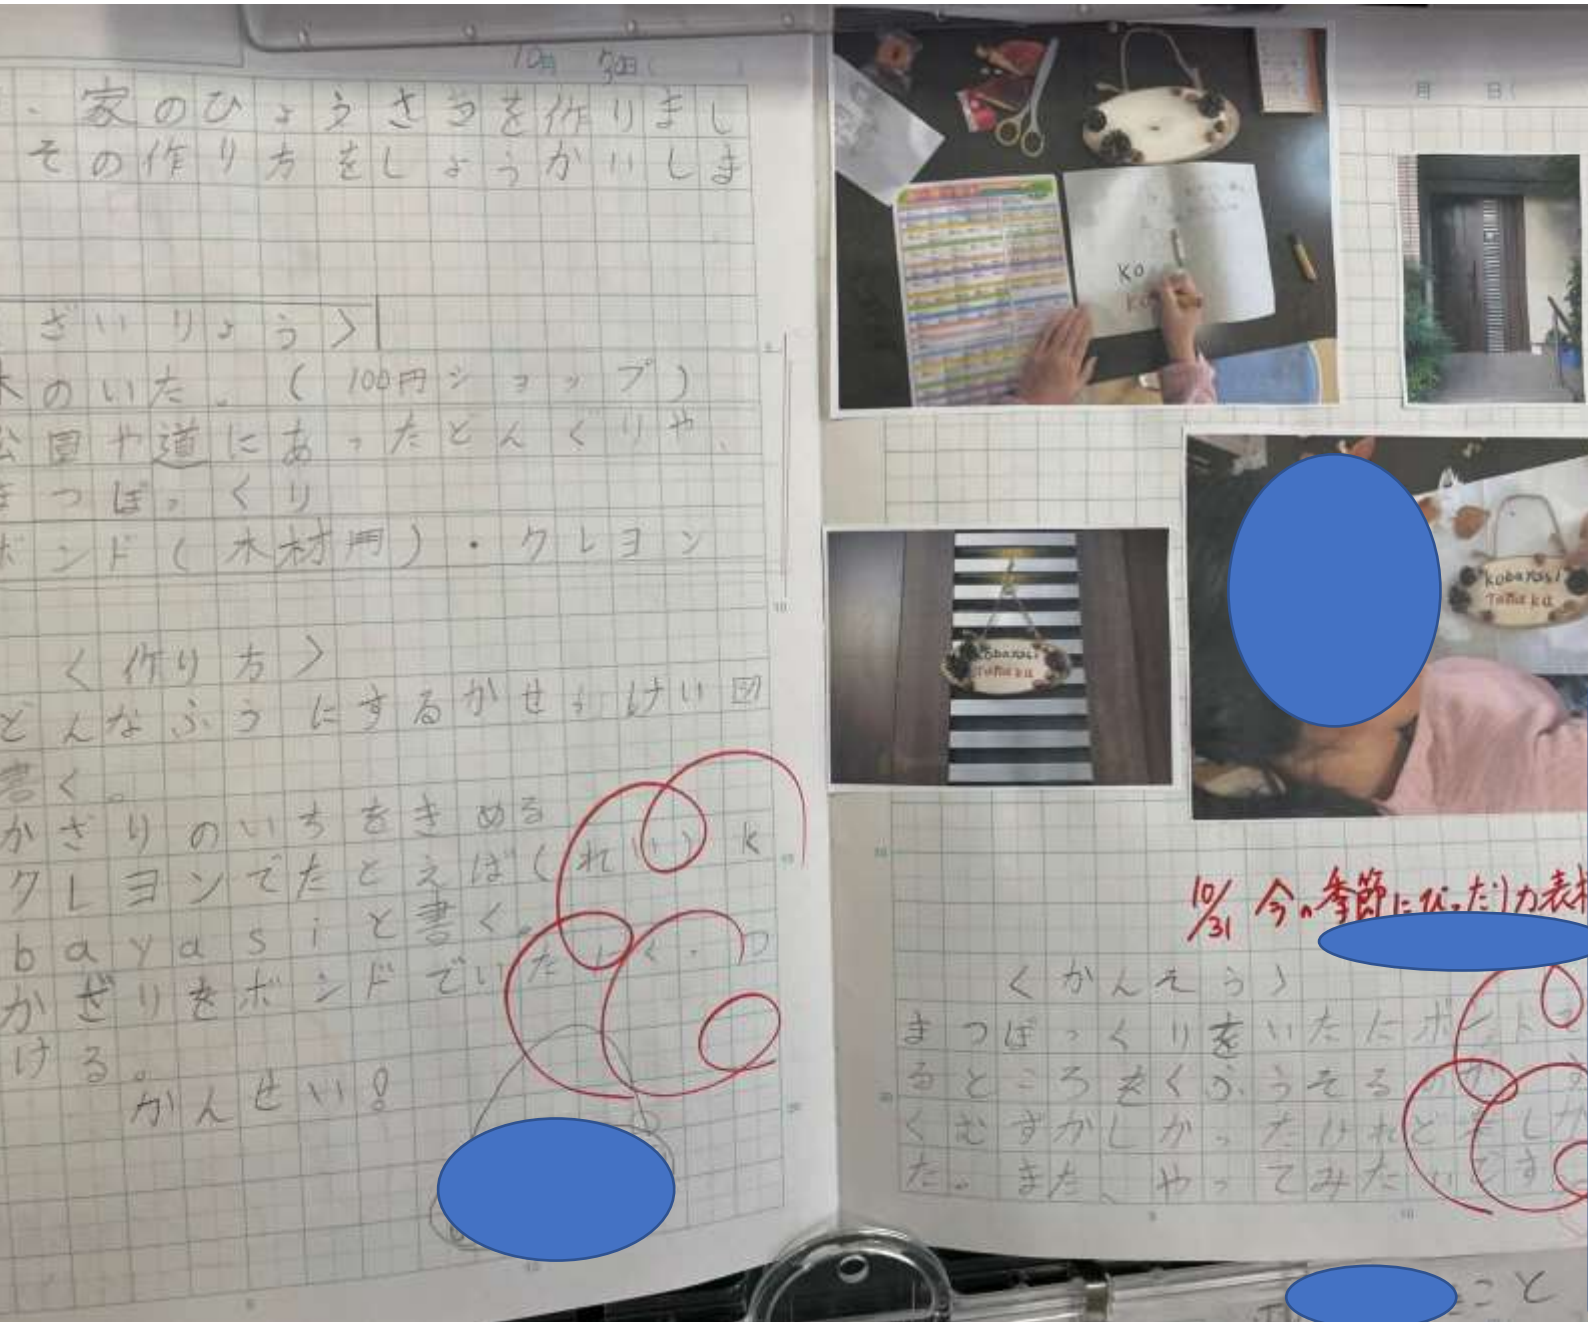 10月30日(
・家のひょうさつを作りまし
その作り方をしょうかいしま
ざいりょう〉
木のいた。(100円ショップ)
公園や道にあったどんぐりや、
まつぼっくり
ボンド(木材用)・クレヨン
〈作り方〉
どんなふうにするかせっけい図
書く。
かざりのいちをきめる
クレヨンでたとえば(れい)k
bayasiと書く。
かざりをボンドでいたに
ける。
かんせい!
月 日(
Ko
Ko
Kobayasi
Tanaka
Kobayasi
Tanaka
10/31 今の季節にぴったりの表札
〈かんそう〉
まつぼっくりをいたにボンド
るところをくふうするのが
くむずかしかったけれど
た。また、やってみたいです
こと